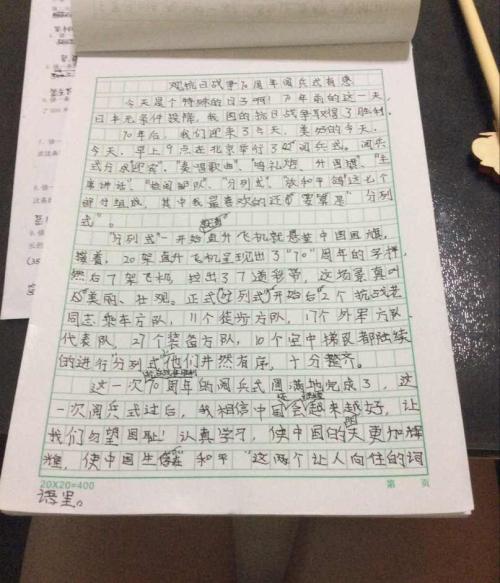 观抗日战争70周年阅兵式有感
今天是个特殊的日子啊!70年前的这一天,
日本无条件投降,我国的抗日战争取得了胜利。
70年后,我们迎来了今天,美好的今天。
今天,早上9点在北京举行了阅兵式。阅兵
式分成"迎宾"、"奏唱歌曲"、"鸣礼炮、升国旗"、"主
席讲话"、"检阅部队"、"分列式"、"放和平鸽"这七个
部分组成,其中我最喜欢的还要算是"分列
式"。
"分列式"一开始直升飞机就悬挂中国国旗,
接着,20架直升飞机呈现出了"70"周年的字样,
然后7架飞机,拉出了7道彩带,这场景真叫
美丽、壮观。正式分列式开始后2个抗战老
同志乘车方队,11个徒步方队,17个外军方队、
代表队,27个装备方队,10个空中梯队都陆续
的进行"分列式"他们井然有序,十分整齐。
这一次70周年的阅兵式圆满地完成了,这
一次阅兵式过后,我相信中国会越来越好,让
我们勿望国耻!认真学习,使中国的天更加辉
煌,使中国生存在"和平"这两个让人向往的词
20X20=400 第 页
语里。